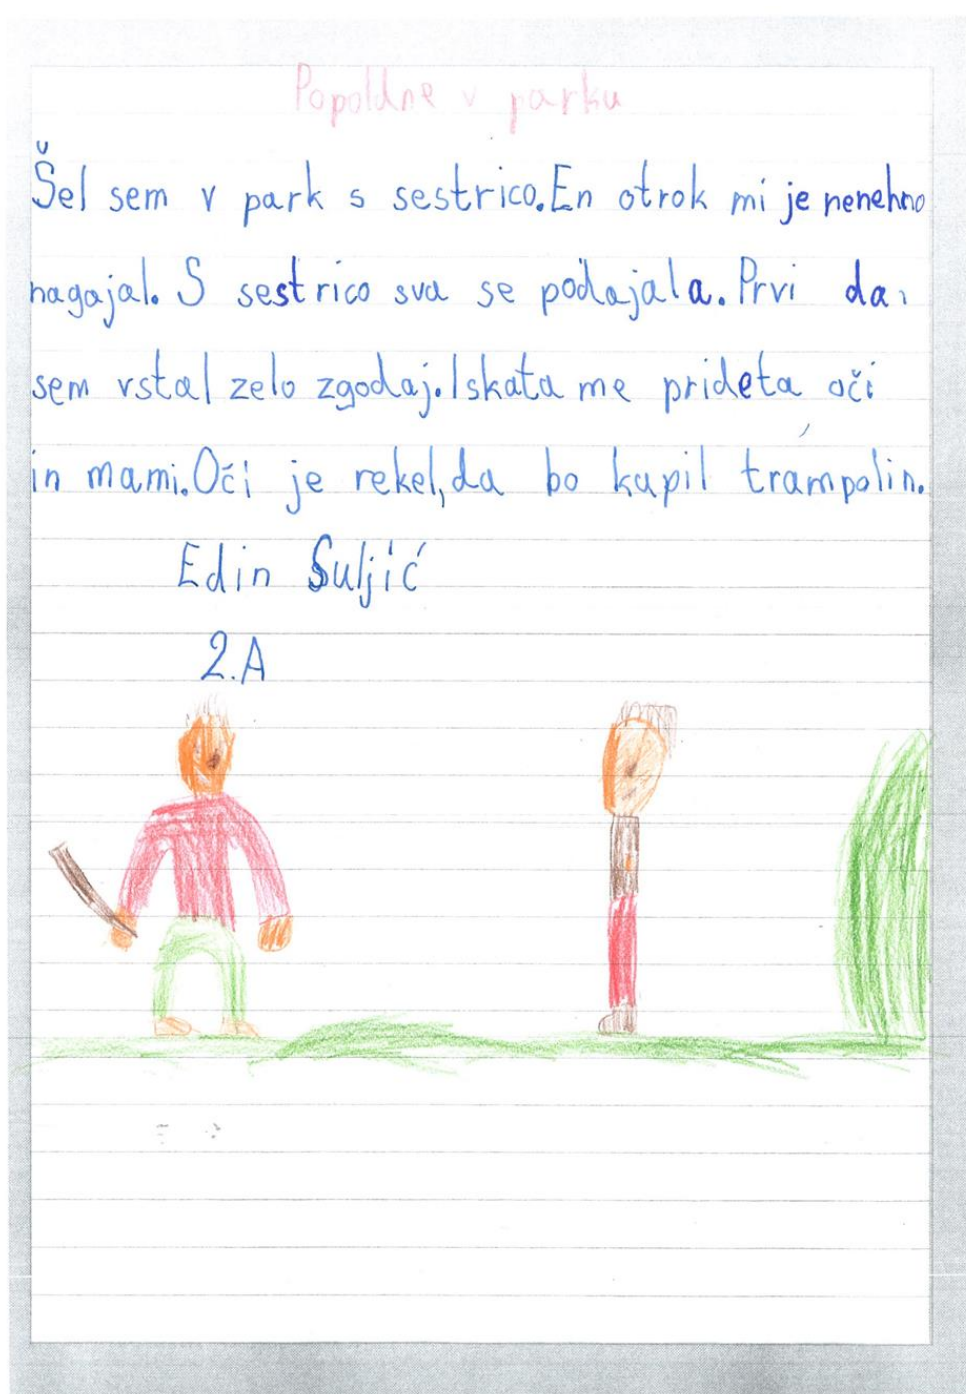 Popoldne v parku
Šel sem v park s sestrico. En otrok mi je nenehno
nagajal. S sestrico sva se podajala. Prvi da
sem vstal zelo zgodaj. Iskata me prideta oči
in mami. Oči je rekel, da bo kupil trampolin.
Edin Suljić
2.A